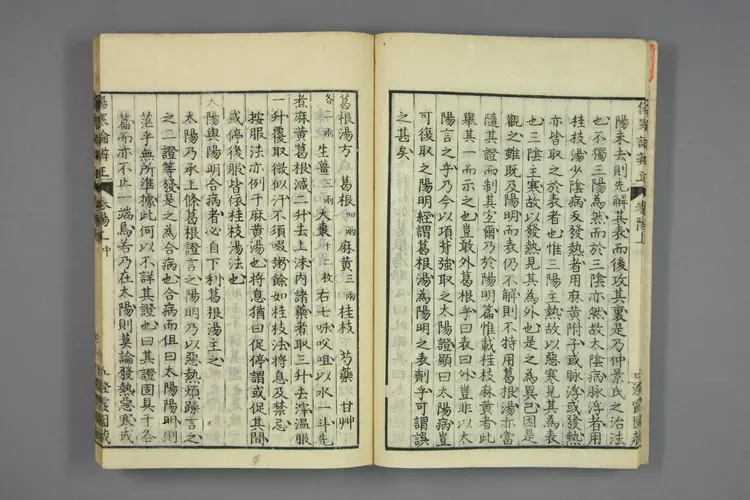 陽未去則先解其表而後攻其裏是乃仲景氏之治法
也不獨三陽為然而於三陰亦然故太陰病脉浮者用
桂枝湯少陰病反發熱者用麻黃附子或脉浮或發熱
亦皆取之於表者也惟三陽主熱故以惡寒見其為表
也三陰主寒故以發熱見其為外也是之為異已因是
觀之雖既及陽明而表仍不解則不特用葛根湯亦當
隨其證而制其宜爾乃於陽明篇惟載桂枝麻黃者此
舉其一而示之也豈敢外葛根乎曰表曰外豈非以太
陽言之乎乃今以項背強取之太陽證顯曰太陽病豈
可復取之陽明經謂葛根湯為陽明之表劑乎可謂誤
之甚矣
葛根湯方 葛根四兩麻黃三兩桂枝 芍藥 甘艸
各二兩生薑三兩大棗十二枚右七味㕮咀以水一斗先
煮麻黃葛根減二升去上沫内諸藥者取三升去滓溫服
一升覆取微似汗不須啜粥餘如桂枝法將息及禁忌
按服法亦例于麻黃湯也將息猶曰促停謂或促其間
或停後服皆依桂枝湯法也
太陽與陽明合病者必自下利葛根湯主之
太陽乃承上條葛根證言之陽明乃以惡熱煩躁言之
之二證等發是之為合病也合病而但曰太陽陽明則
茫乎無所準據此何以不詳其證也曰其證固具于各
篇而亦不止一端焉若乃在太陽則莫論發熱惡寒或
傷寒論辨正 卷陽上中